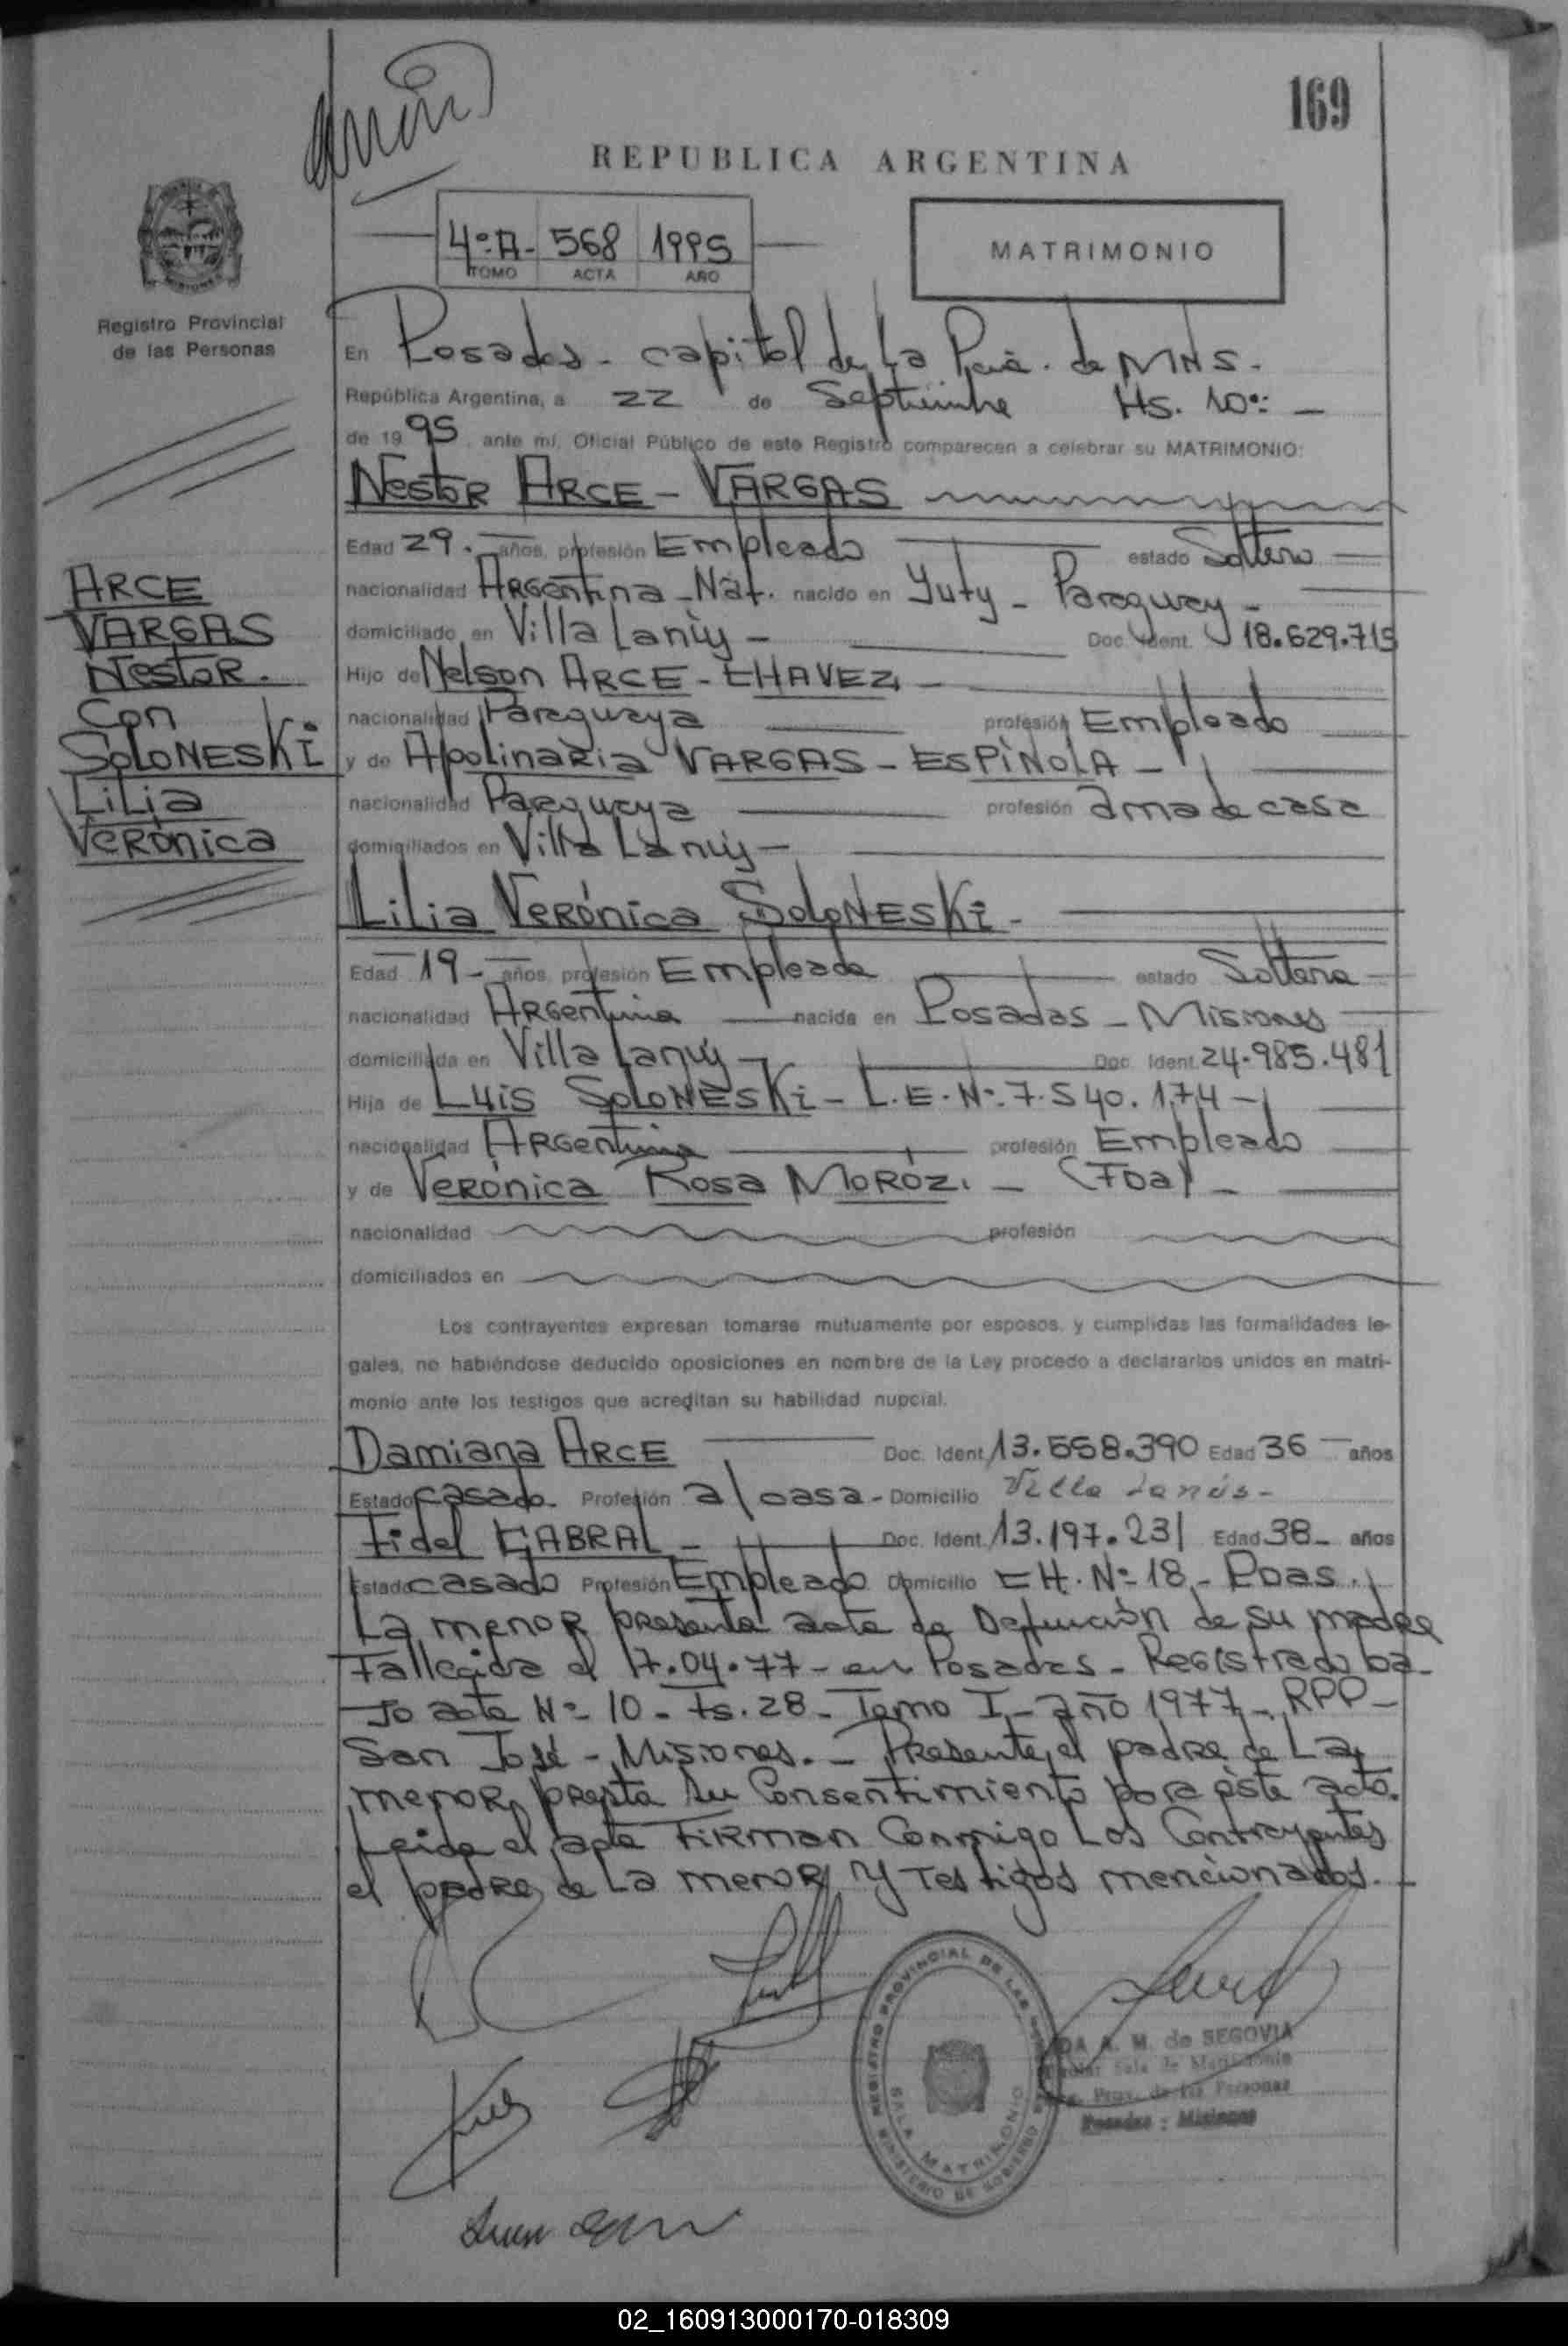 169
REPUBLICA ARGENTINA
4º A- 568 1995
TOMO ACTA AÑO
MATRIMONIO
Registro Provincial
de las Personas
En Posadas - capital de La Pcia. de MNS.
República Argentina, a 22 de Septiembre Hs. 10:-
de 1995, ante mí, Oficial Público de este Registro comparecen a celebrar su MATRIMONIO:
Nestor ARCE - VARGAS
Edad 29.- años, profesión Empleado estado Soltero
nacionalidad Argentina - Nat. nacido en Yuty - Paraguay -
domiciliado en Villa Lanús - Doc. Ident. 18.629.715
Hijo de Nelson ARCE - CHAVEZ -
nacionalidad Paraguaya profesión Empleado
y de Apolinaria VARGAS - ESPINOLA -
nacionalidad Paraguaya profesión ama de casa
domiciliados en Villa Lanús -
ARCE
VARGAS
Nestor.
Con
SOLONESKI
Lilia
Verónica
Lilia Verónica SOLONESKI -
Edad 19 - años, profesión Empleada estado Soltera
nacionalidad Argentina nacida en Posadas - Misiones
domiciliada en Villa Lanús - Doc. Ident. 24.985.481
Hija de Luis SOLONESKI - L.E. Nº 7.540.174 -
nacionalidad Argentina profesión Empleado
y de Verónica Rosa MORÓZ. - (Fda) -
nacionalidad profesión
domiciliados en
Los contrayentes expresan tomarse mutuamente por esposos, y cumplidas las formalidades le-
gales, no habiéndose deducido oposiciones en nombre de la Ley procedo a declararlos unidos en matri-
monio ante los testigos que acreditan su habilidad nupcial.
Damiana ARCE Doc. Ident. 13.558.390 Edad 36 - años
Estado casada Profesión a/casa - Domicilio Villa Lanús -
Fidel CABRAL - Doc. Ident. 13.197.231 Edad 38 - años
Estado casado Profesión Empleado Domicilio CH. Nº 18 - Pdas.
La menor presenta acta de Defunción de su madre
Fallecida el 17.04.77 - en Posadas - Registrado ba-
jo acta Nº 10 - Fs. 28 - Tomo I - año 1977 - RPP -
San José - Misiones. - Presente, el padre de La
menor, presta su Consentimiento para éste acto.
Leida el acta Firman Conmigo Los Contrayentes
el padre de La menor y Testigos mencionados. -
REGISTRO PROVINCIAL DE LAS PERSONAS
SALA MATRIMONIO
MINISTERIO DE GOBIERNO
A. M. de SEGOVIA
Sala de Matrimonio
Prov. de las Personas
Posadas - Misiones
02_160913000170-018309